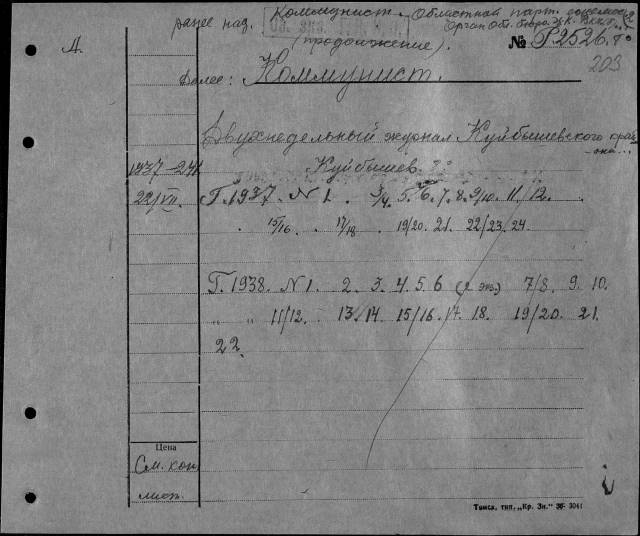 ранее над. Коммунист. Областная парт.
Орган Обл. бюро
(продолжение).
№ Р2526.
203
Д.
Далее: Коммунист.
Двухнедельный журнал Куйбышевского край
1937-
Куйбышев. 7°
22/VII.
Г. 1937. N 1. 3/4. 5. 6. 7. 8. 9/10. 11/12.
15/16. 17/18. 19/20. 21. 22/23. 24.
Г. 1938. N 1. 2. 3. 4. 5. 6 (2 экз.) 7/8. 9. 10.
„ „ 11/12. 13. 14. 15/16. 17. 18. 19/20. 21.
22.
Цена
См. кон.
лист.
Томск, тип. „Кр. Зн." 3041